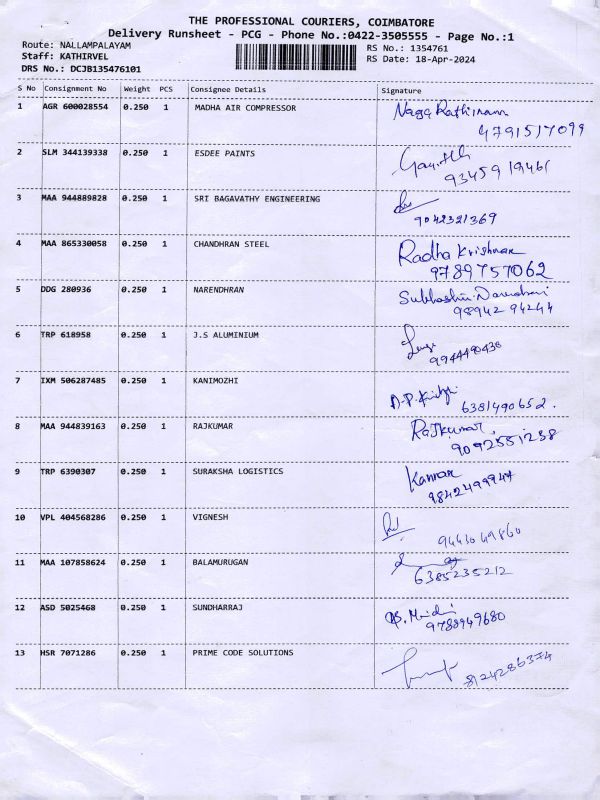 THE PROFESSIONAL COURIERS, COIMBATORE
Delivery Runsheet - PCG - Phone No.:0422-3505555 - Page No.:1
Route: NALLAMPALAYAM RS No.: 1354761
Staff: KATHIRVEL RS Date: 18-Apr-2024
DRS No.: DCJB135476101
S No Consignment No Weight PCS Consignee Details Signature
1 AGR 600028554 0.250 1 MADHA AIR COMPRESSOR Naga Rathinam
4791517099
2 SLM 344139338 0.250 1 ESDEE PAINTS
93459 19461
3 MAA 944889828 0.250 1 SRI BAGAVATHY ENGINEERING
9042321369
4 MAA 865330058 0.250 1 CHANDHRAN STEEL Radha Krishnan
9789757062
5 DDG 280936 0.250 1 NARENDHRAN
98942 94244
6 TRP 618958 0.250 1 J.S ALUMINIUM
9944490438
7 IXM 506287485 0.250 1 KANIMOZHI
6381490652.
8 MAA 944839163 0.250 1 RAJKUMAR Rajkumar
9092551238
9 TRP 6390307 0.250 1 SURAKSHA LOGISTICS Kannan
9842499947
10 VPL 404568286 0.250 1 VIGNESH
9443049860
11 MAA 107858624 0.250 1 BALAMURUGAN
6385235212
12 ASD 5025468 0.250 1 SUNDHARRAJ
9788949680
13 HSR 7071286 0.250 1 PRIME CODE SOLUTIONS
8124286374